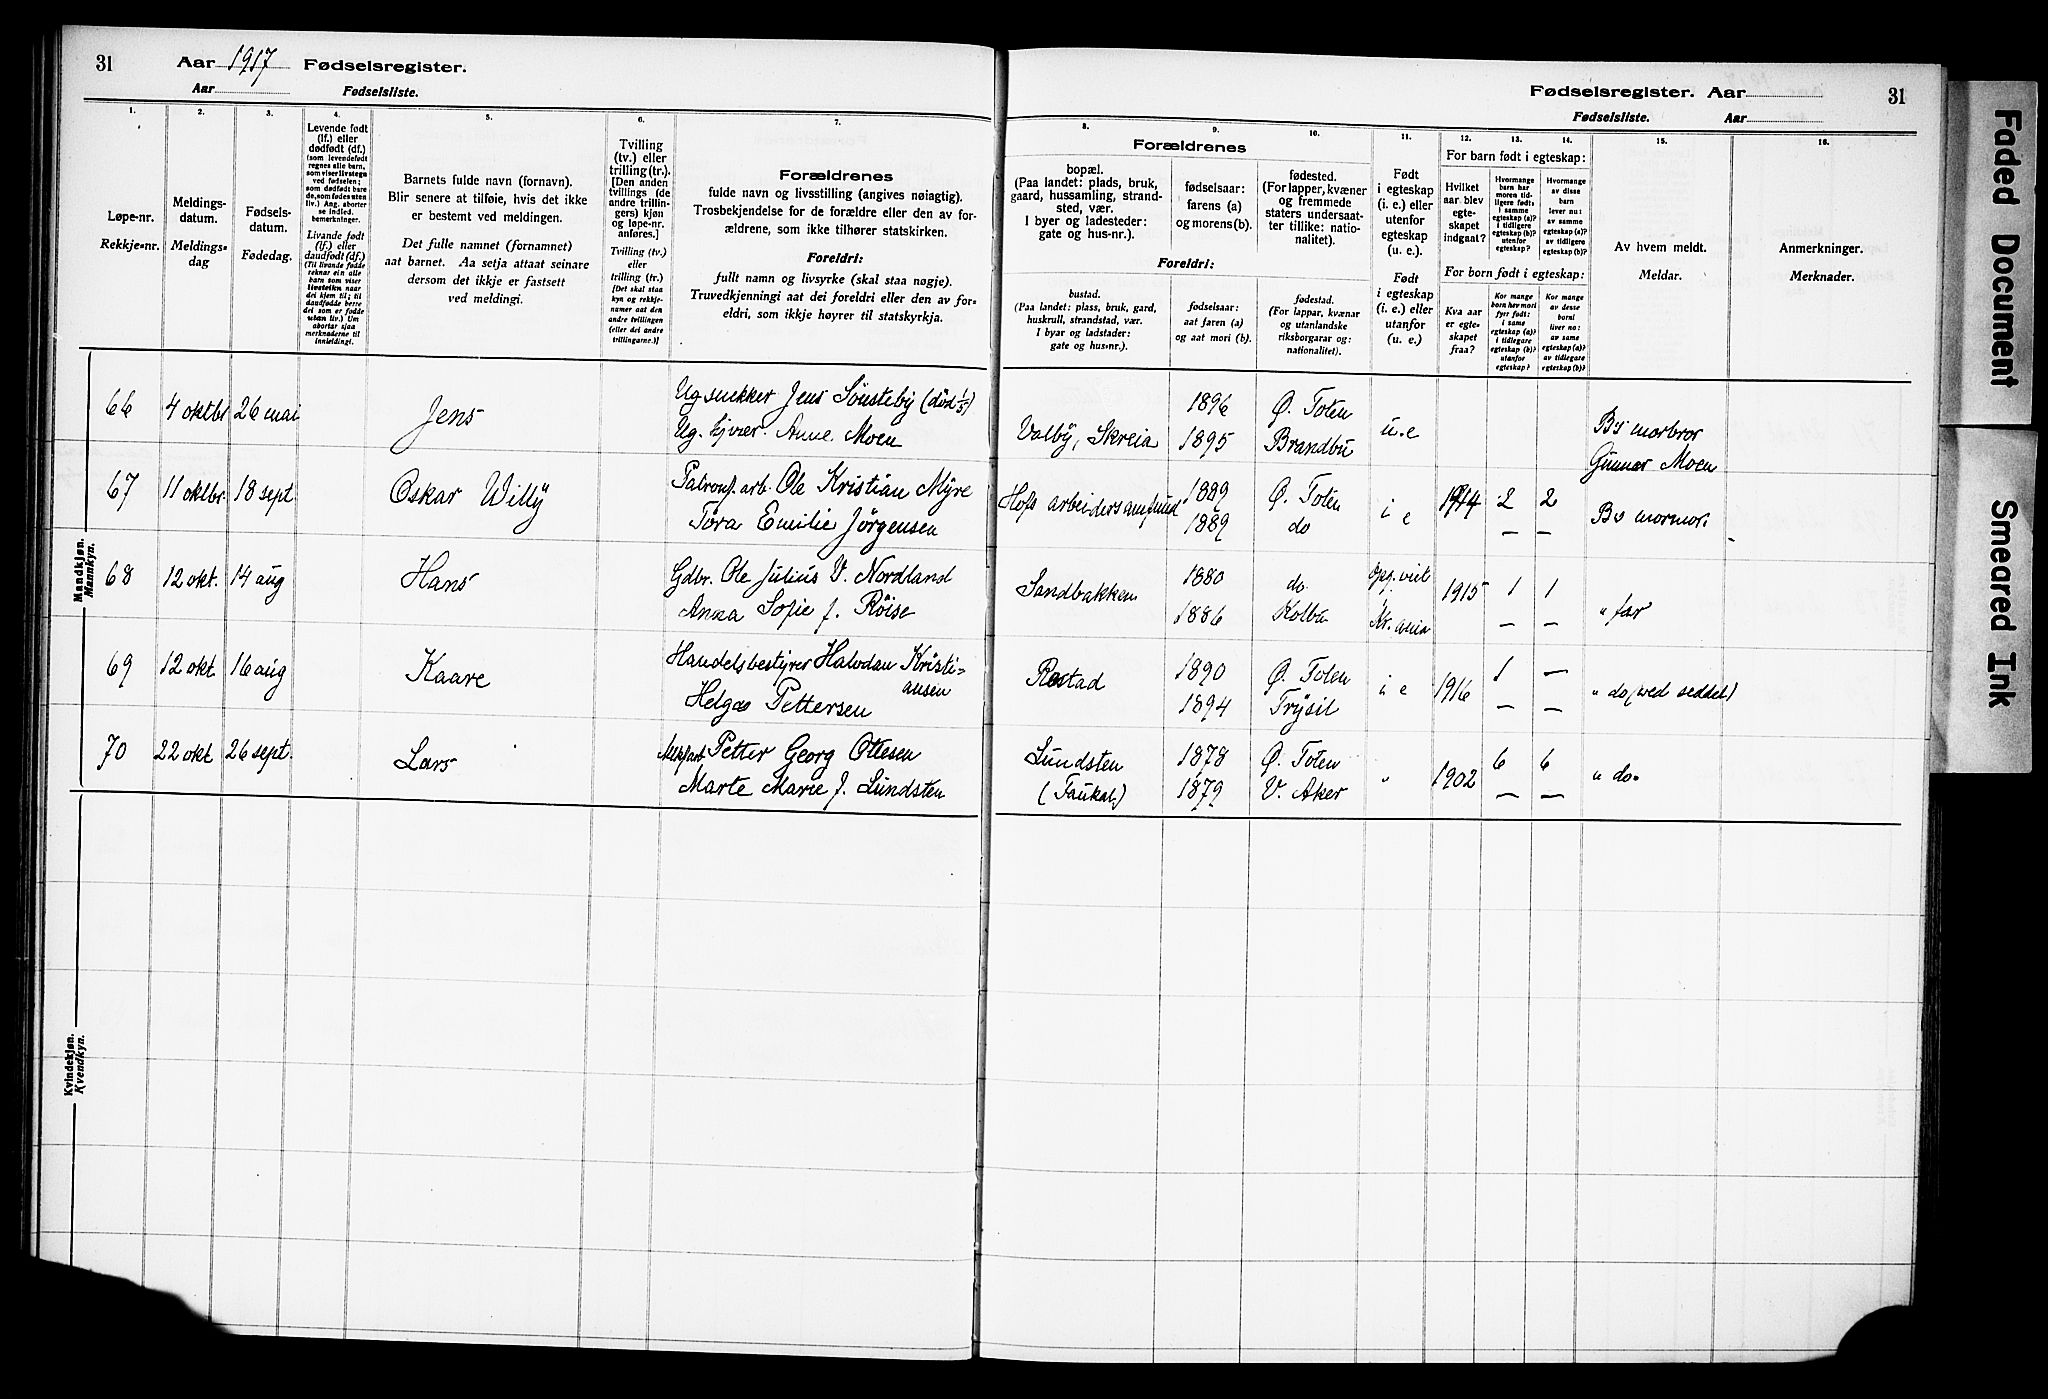 31 Aar 1917 Fødselsregister.
Aar Fødselsliste.
Fødselsregister. Aar 31
Fødselsliste. Aar
1. 2. 3. 4. 5. 6. 7. 8. 9. 10. 11. 12. 13. 14. 15. 16.
Løpe-nr.
Rekkje-nr.
Meldings-
datum.
Meldings-
dag
Fødsels-
datum.
Fødedag.
Levende født
(lf.) eller
dødfødt (df.)
(som levendefødt
regnes alle barn,
som viser livstegn
ved fødselen;
som dødfødt bare
de, som fødes uten
liv.) Ang. aborter
se indled.
bemerkninger.
Livande født
(lf.) eller
daudfødt (df.)
(Til livande fødde
reknar ein alle
barn som viser
livsteikn naar
dei kjem til; til
daudfødde berre
dei som er fødde
utan liv.) Um
abortar sjaa
merknaderne til
innleidingi.
Barnets fulde navn (fornavn).
Blir senere at tilføie, hvis det ikke
er bestemt ved meldingen.
Det fulle namnet (fornamnet)
aat barnet. Aa setja attaat seinare
dersom det ikkje er fastsett
ved meldingi.
Tvilling
(tv.) eller
trilling (tr.).
[Den anden
tvillings (de
andre trillin-
gers) kjøn
og løpe-nr.
anføres.]
Tvilling (tv.)
eller
trilling (tr.)
[Det skal staa
kyn og rekkje-
numer aat den
andre tvillingen
(eller dei andre
trillingarne.)]
Forældrenes
fulde navn og livsstilling (angives nøiagtig).
Trosbekjendelse for de forældre eller den av for-
ældrene, som ikke tilhører statskirken.
Foreldri:
fullt namn og livsyrke (skal staa nøgje).
Truvedkjenningi aat dei foreldri eller den av for-
eldri, som ikkje høyrer til statskyrkja.
Forældrenes
bopæl.
(Paa landet: plads, bruk,
gaard, hussamling, strand-
sted, vær.
I byer og ladesteder:
gate og hus-nr.).
Foreldri:
bustad.
(Paa landet: plass, bruk, gard,
huskrull, strandstad, vær.
I byar og ladstader:
gate og hus-nr.).
fødselsaar:
farens (a)
og morens (b).
fødselsaar:
aat faren (a)
og aat mori (b).
fødested.
(For lapper, kvæner
og fremmede
staters undersaat-
ter tillike: natio-
nalitet).
fødestad.
(For lappar, kvænar
og utanlandske
riksborgarar og:
nationalitet).
Født
i egteskap
(i. e.) eller
utenfor
egteskap
(u. e.).
Født
i egteskap
(i. e.) eller
utanfor
(u. e.)
For barn født i egteskap:
Hvilket
aar blev
egte-
skapet
indgaat?
Hvormange
barn har
moren tid-
ligere født:
i samme
egteskap (a)?
i tidligere
egteskap (b)?
utenfor
egteskap?
Hvormange
av disse
barn
lever nu:
av samme
egteskap (a)?
av tidligere
egteskap (b)?
For born født i egteskap:
Kva aar
er egte-
skapet
fraa?
Kor mange
born hev mori
fyrr født:
i same
egteskap (a)?
i tidlegare
egteskap (b)?
utanfor
egteskap?
Kor mange
av desse
borni
liver no:
av same
egteskap (a)?
av tidlegare
egteskap (b)?
Av hvem meldt.
Meldar.
Anmerkninger.
Merknader.
Mandkjøn.
Mannkyn.
66 4 oktbr 26 mai Jens Ug snekker Jens Sønsteby (død 1/5) 1896 Ø. Toten
Ug. tjener. Anne Moen Valby, Skreia 1895 Brandbu u.e Bs morbror
Gunnar Moen
67 11 oktbr 18 sept. Oskar Willy Patronf. arb. Ole Kristian Myre Hofs arbeidersamfund 1889 Ø. Toten i e 1914 2 2
Tora Emilie Jørgensen 1889 do — — Bs mormor.
68 12 okt. 14 aug Hans Gdbr. Ole Julius V. Nordland Sandbakken 1880 do. 1915 1 1
Anna Sofie f. Røise 1886 Kolbu Kr. ania — — " far
69 12 okt 16 aug Kaare Handelsbestyrer Halvdan Kristi-
ansen Rostad 1890 Ø. Toten i e 1916 1 —
Helga Pettersen 1894 Trysil — — " do (ved seddel)
70 22 okt 26 sept. Lars Petter Georg Ottesen Lundsten 1878 Ø. Toten " 1902 6 6
Marte Marie f. Lundsten (Faukal.) 1879 V. Aker — — " do.
Kvindekjøn.
Kvendkyn.
Faded Document
Smeared Ink